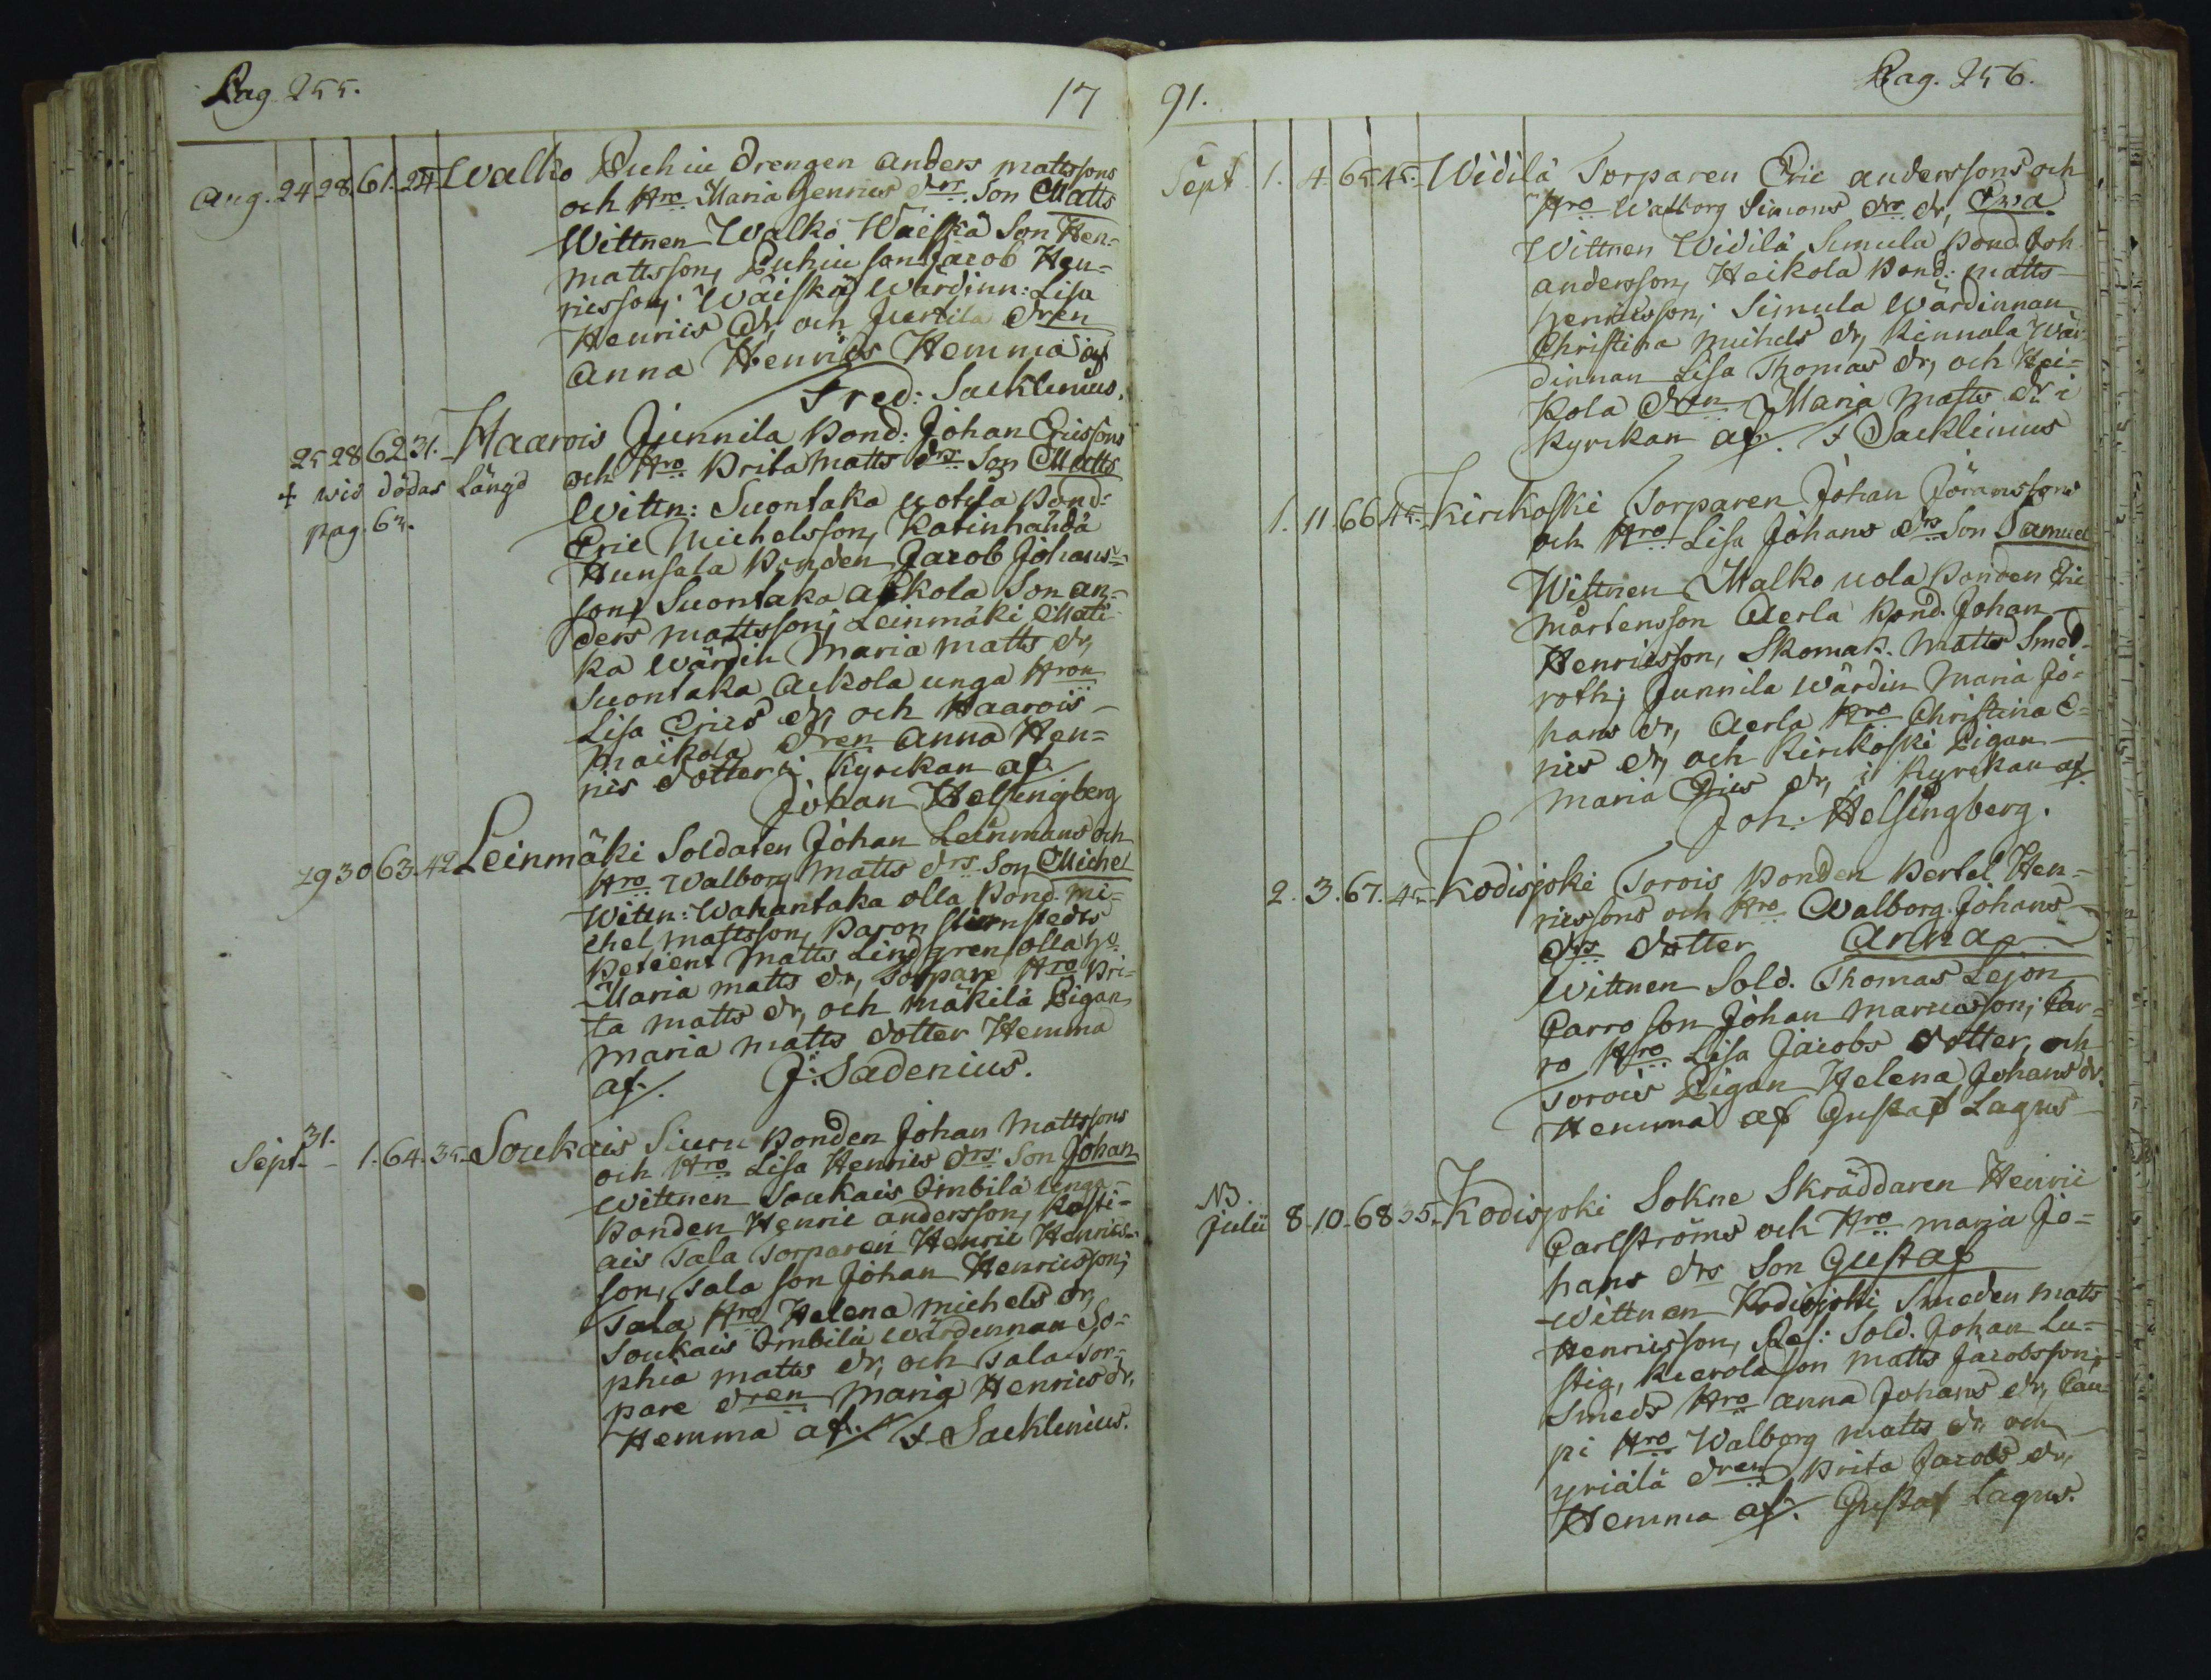 Pag. 255.
17
Aug. 24 28. 61. 24. Walko Puhiu Drengen Anders Mattssons
och Hro Maria Henrics drs Son Matts
Wittnen Walko Wäiskä Son Hen-
Mattsson, Puhiu Son Jacob Hen-
ricsson; Wäiskä Wärdinn: Lisa
Henrics dr, och Jurtila dren
Anna Henrics Hemma af
Fred: Sacklinius.
25 28 62 31. Haarois Junnila Bond: Johan Ericssons
och Hro Brita Matts drs Son Matts
+ wid dödas Längd
pag. 63.
Wittn: Suontaka Uotila Bond:
Eric Michelsson, Karinhaudä
Hunsala Bonden Jacob Johans-
son, Suontaka Ackola Son An-
ders Mattsson; Leinmäki Matti-
ka Wärdin Maria Matts dr,
Suontaka Ackola unga Hron
Lisa Erics dr, och Haarois
Maikola dren Anna Hen-
rics dotter i Kyrckan af
Johan Helsingberg
29 30 63. 42 Leinmäki Soldaten Johan Leinmans och
Hro Walborg Matts drs Son Michel
Wittn: Wahantaka Olla Bond. Mi-
chel Mattsson, Baron Stiernstedts
Betient Matts Lindgren Olla Hro
Maria Matts dr, Torpare Hro Bri-
ta Matts dr, och Mäkilä Pigan
Maria Matts dotter Hemma
af. J: Sadenius.
31.
Sept. 1. 64. 35. Soukais Siuru Bonden Johan Mattssons
och Hro Lisa Henrics drs Son Johan
Wittnen Soukais Ombilä unga
Bonden Henric Andersson, Kosti-
ais Tala Torparen Henric Henrics-
son, Tala Son Johan Henricsson;
Tala Hro Helena Michels dr,
Soukais Ombilä Wärdinnan So-
phia Matts dr, och Tala Tor-
pare dren Maria Henrics dr.
Hemma af. F. Sacklinius.
91.
Pag. 256.
Sept. 1. 4. 65. 45. Widilä Torparen Eric Anderssons och
Hro Walborg Simons drs dr, Ewa
Wittnen Widilä Simula Bond. Joh
Andersson, Heikola Bond: Matts
Henricsson; Simula Wärdinnan
Christina Michels dr, Kinnala Wär-
dinnan Lisa Thomas dr, och Hei-
kola dren Maria Matts dr i
Kyrckan af. F Sacklinius
1. 11. 66 45. Kirckoski Torparen Johan Jöranssons
och Hro Lisa Johans drs Son Samuel
Wittnen Malko Uola Bonden Eric
Mårtensson Aerla Bond. Johan
Henricsson, Skomak. Matts Smed-
roth; Junnila Wärdin Maria Jo-
hans dr, Aerla Hro Christina E-
rics dr, och Kirckoski Pigan
Maria Erics dr, i Kyrckan af
Joh: Helsingberg.
2. 3. 67. 45. Kodisjoki Torois Bonden Bertel Hen-
ricssons och Hro Walborg Johans
drs dotter Anna
Wittnen Sold. Thomas Lejon
Carro Son Johan Marcusson; Car-
ro Hro Lisa Jacobs dotter, och
Torois Pigan Helena Johans dr.
Hemma af Gustaf Lagus
NB.
Julii 8. 10. 68 35. Kodisjoki Sokne Skräddaren Henric
Carlströms och Hro Maria Jo-
hans drs Son Gustaf
Wittnen Kodisjoki Smeden Mats
Henricsson, Res: Sold. Johan Lu-
stig, Kierola Son Matts Jacobsson;
Smeds Hro Anna Johans dr, Cau-
pi Hro Walborg Matts dr och
Yriälä dren Brita Jacobs dr,
Hemma af. Gustaf Lagus.